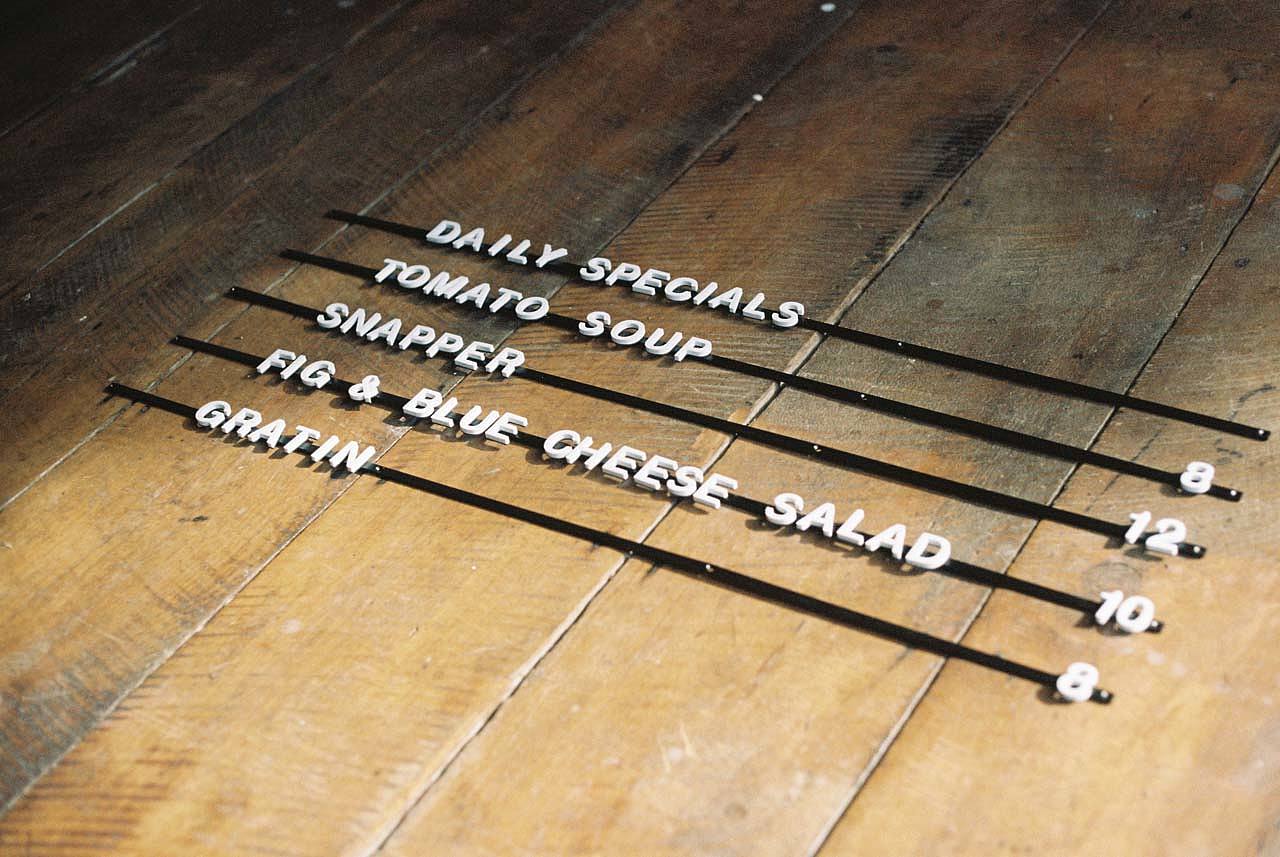 DAILY SPECIALS
TOMATO SOUP 8
SNAPPER 12
FIG & BLUE CHEESE SALAD 10
GRATIN 8